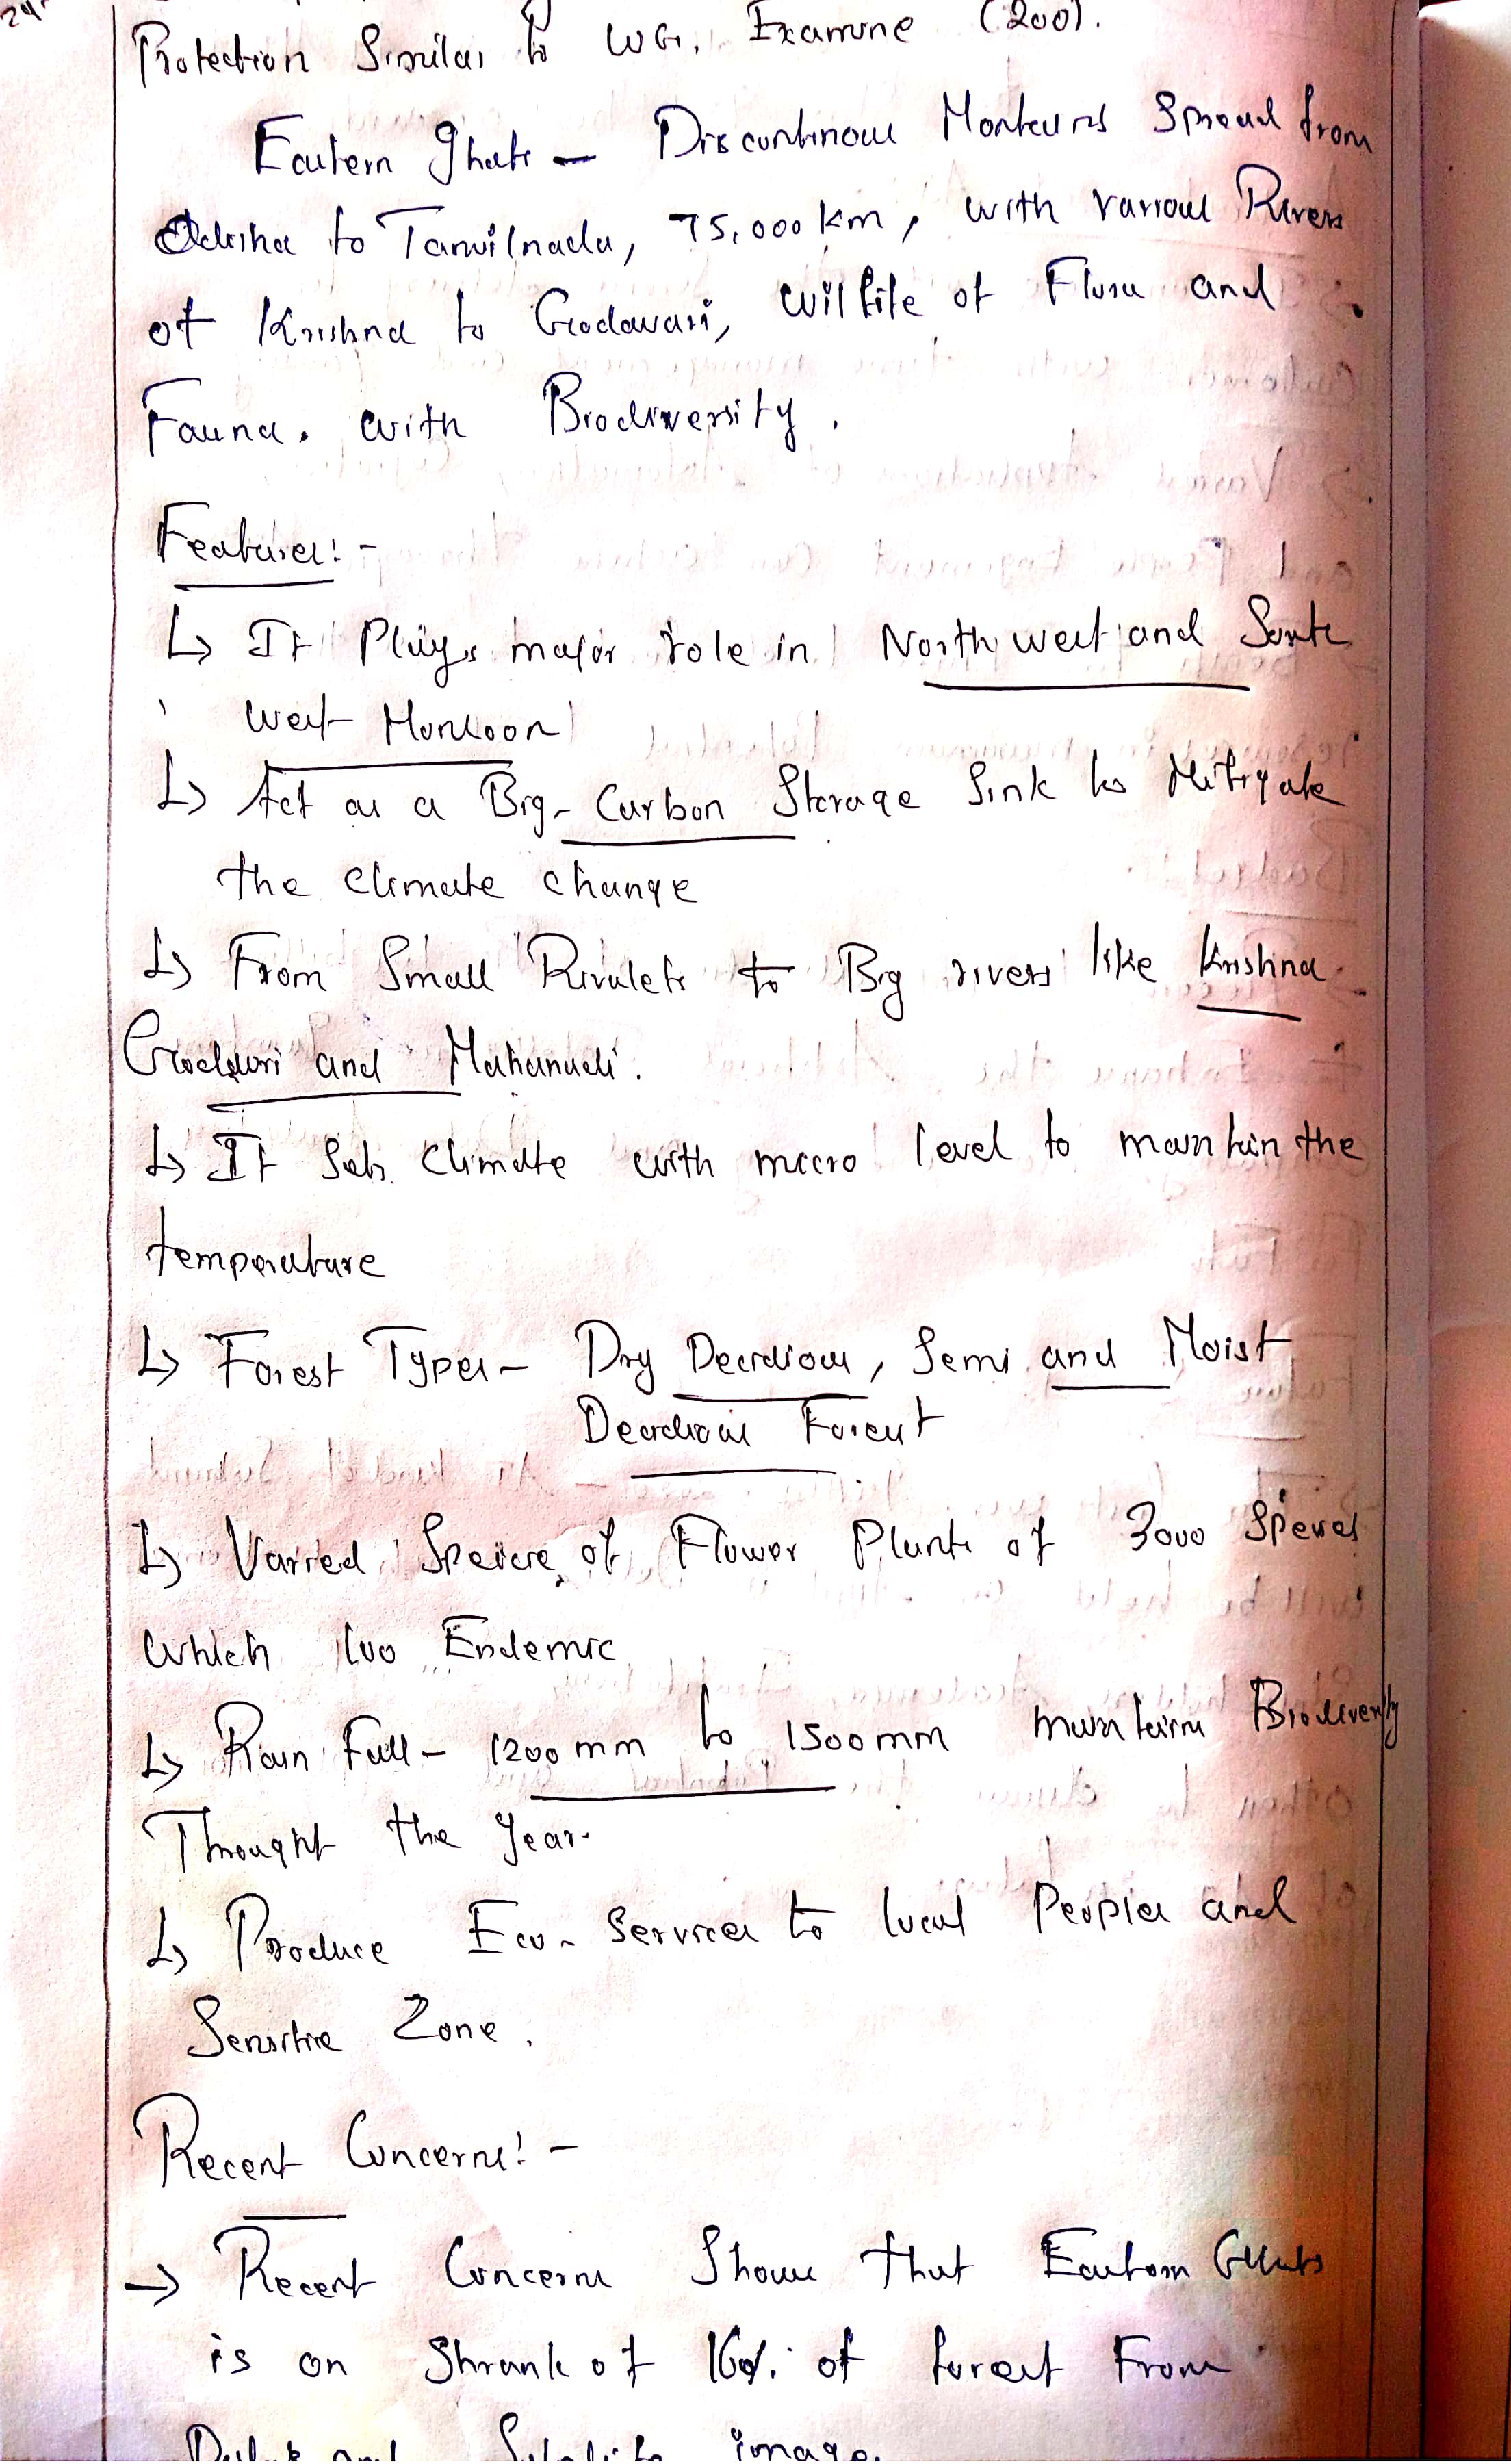 24
Protection Similar to WG. Examine (200).
Eastern Ghats - Discontinous Montains Spread from
Odisha to Tamilnadu, 75,000 km, with various Rivers
of Krishna to Godavari, wilfife of Flora and
Fauna. with Biodiversity.
Features:-
↳ It Plays major role in North west and South
west Monsoon
↳ Act as a Big- Carbon Storage Sink to Mitigate
the climate change
↳ From Small Rivulets to Big rivers like Krishna
Godavari and Mahanadi.
↳ It Sets climate with mecro level to maintain the
temperature
↳ Forest Types - Dry Decidious, Semi and Moist
Decidious Forest
↳ Varied Species of Flower Plants of 3000 Species
which 100 Endemic
↳ Rain Fall - 1200 mm to 1500 mm maintain Biodiversity
Throught the Year.
↳ Produce Eco- Services to local Peoples and
Sensitive Zone.
Recent Concerns:-
→ Recent Concerns Shows that Eastern Ghats
is on Shrank of 16% of forest From
image.